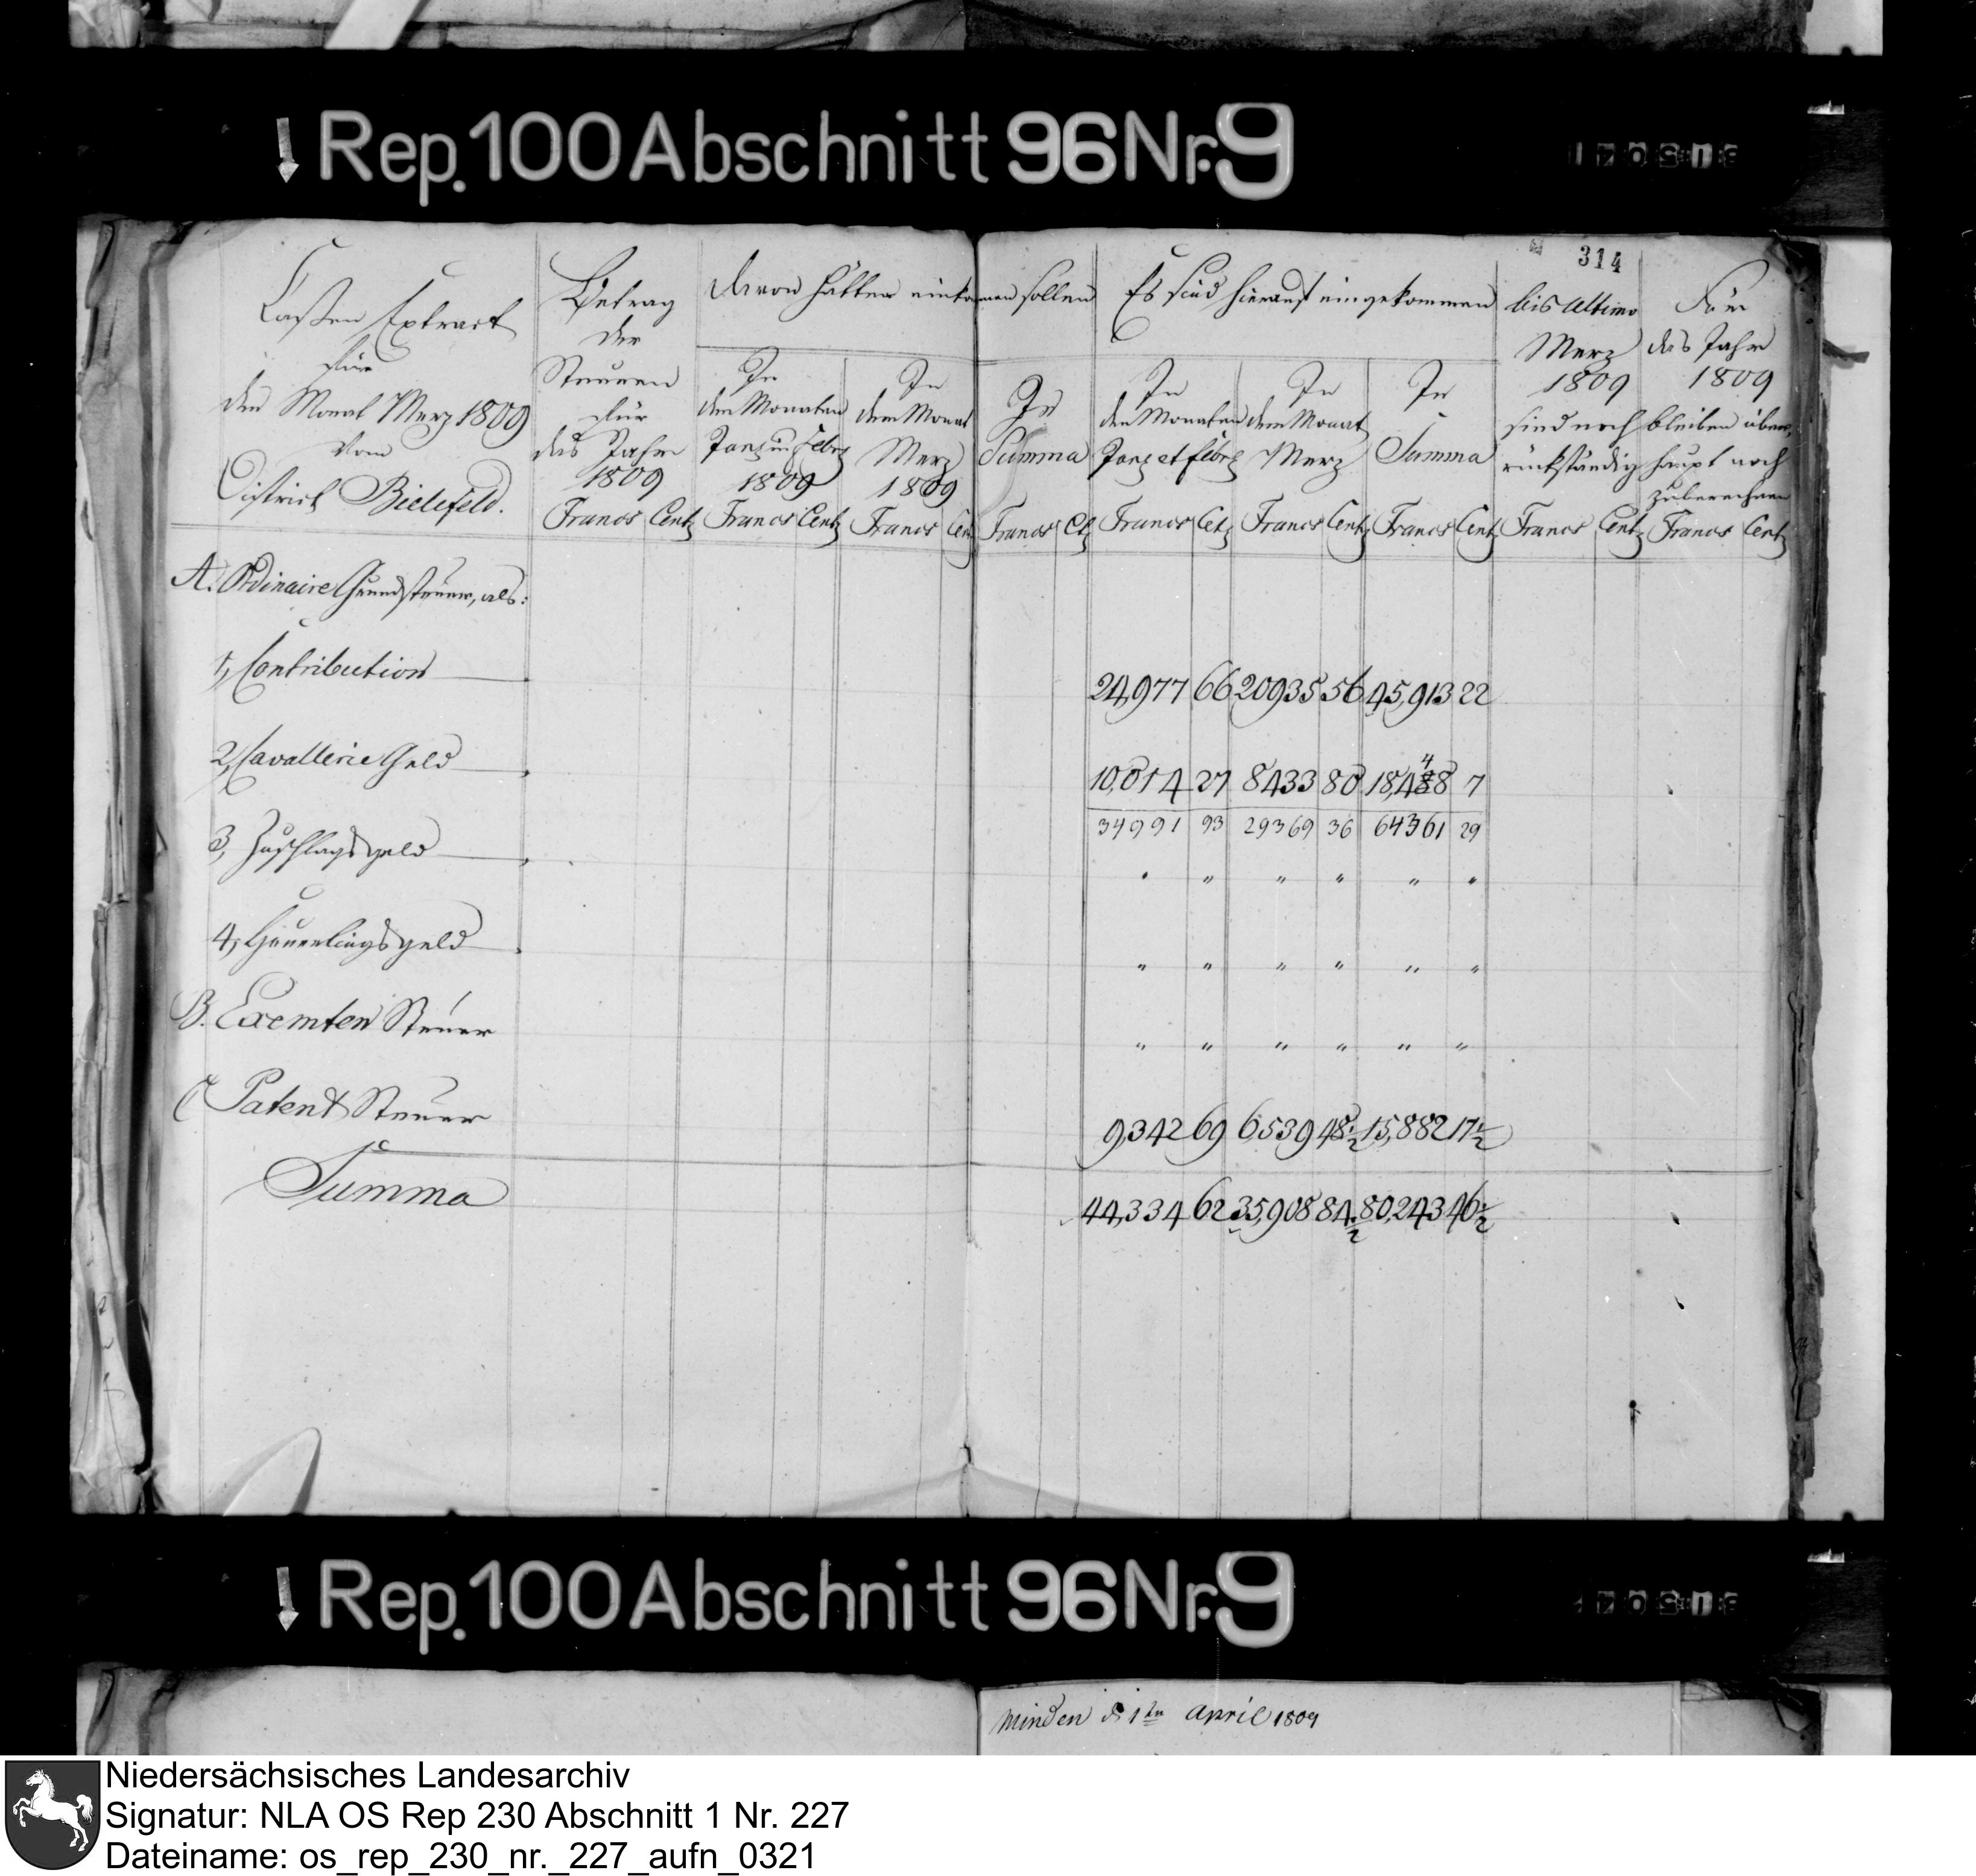 Rep. 100 Abschnitt 96 Nr. 9
314
Cassen Extract
für
den Monat Merz 1809
vom
District Bielefeld.
Betrag
der
Steuern
für
das Jahr
1809
Francs Cent
Davon hätten einkommen sollen
In
den Monaten
Janr. u. Febr.
1809
Francs Cent
In
dem Monat
Merz
1809
Francs Cen
In
Summa
Francs Ct
Es sind hierauf eingekommen
In
den Monaten
Janr. et Febr.
Francs Cet
In
dem Monat
Merz
Francs Cent
In
Summa
Francs Cent
bis ultimo
Merz
1809
sind noch
rückständig
Francs Cent
Für
das Jahr
1809
bleiben über-
haupt noch
zu berechnen
Francs Cent
A. Ordinaire Grundsteuer, als:
1, Contribution
24,977 66 20935 56 45,913 22
2, Cavallerie Geld
10,014 27 8433 80 18,448 7
34991 93 29369 36 64361 29
3, Zuschlagsgeld
" " " " " "
4, Heuerlingsgeld
" " " " " "
B. Exemten Steuer
" " " " " "
C Patent Steuer
9,342 69 6,539 48½ 15,882 17½
Summa
44,334 62 35,908 84½ 80,243 46½
Rep. 100 Abschnitt 96 Nr. 9
Minden d. 1ten April 1809
Niedersächsisches Landesarchiv
Signatur: NLA OS Rep 230 Abschnitt 1 Nr. 227
Dateiname: os_rep_230_nr._227_aufn_0321